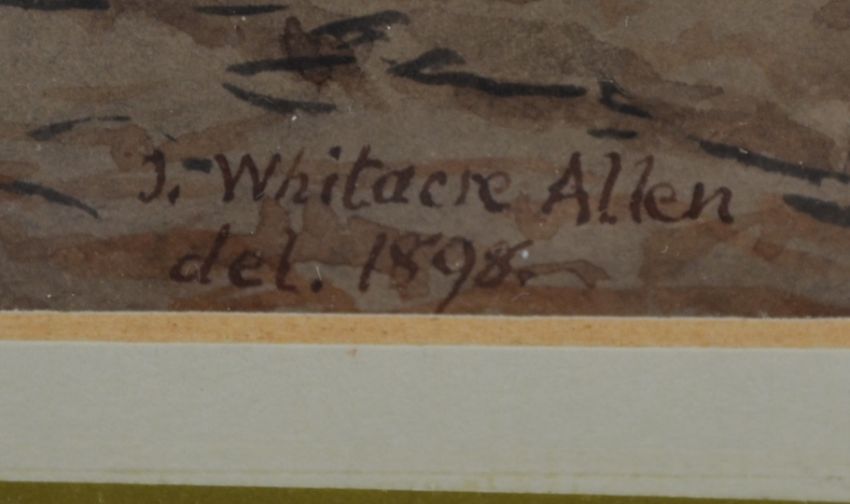 J. Whitacre Allen
del. 1898.